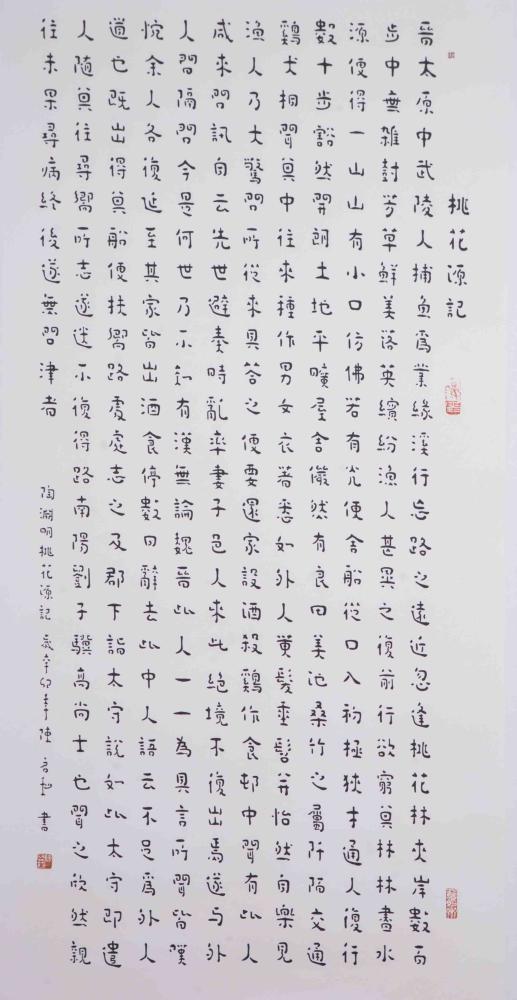 桃花源記
晉太原中武陵人捕魚為業緣溪行忘路之遠近忽逢桃花林夾岸數百
步中無雜封芳草鮮美落英繽紛漁人甚異之復前行欲窮其林林盡水
源便得一山山有小口仿佛若有光便舍船從口入初極狹才通人復行
數十步豁然開朗土地平曠屋舍儼然有良田美池桑竹之屬阡陌交通
鷄犬相聞其中往來種作男女衣著悉如外人黃髮垂髫并怡然自樂見
漁人乃大驚問所從來具答之便要還家設酒殺鷄作食邨中聞有此人
咸來問訊自云先世避秦時亂率妻子邑人來此絕境不復出焉遂与外
人間隔問今是何世乃不知有漢無論魏晉此人一一為具言所聞皆嘆
惋余人各復延至其家皆出酒食停數日辭去此中人語云不足為外人
道也既出得其船便扶嚮路處處志之及郡下詣太守說如此太守即遣
人隨其往尋嚮所志遂迷不復得路南陽劉子驥高尚士也聞之欣然親
往未果尋病終後遂無問津者
陶淵明桃花源記 歲辛卯年 書